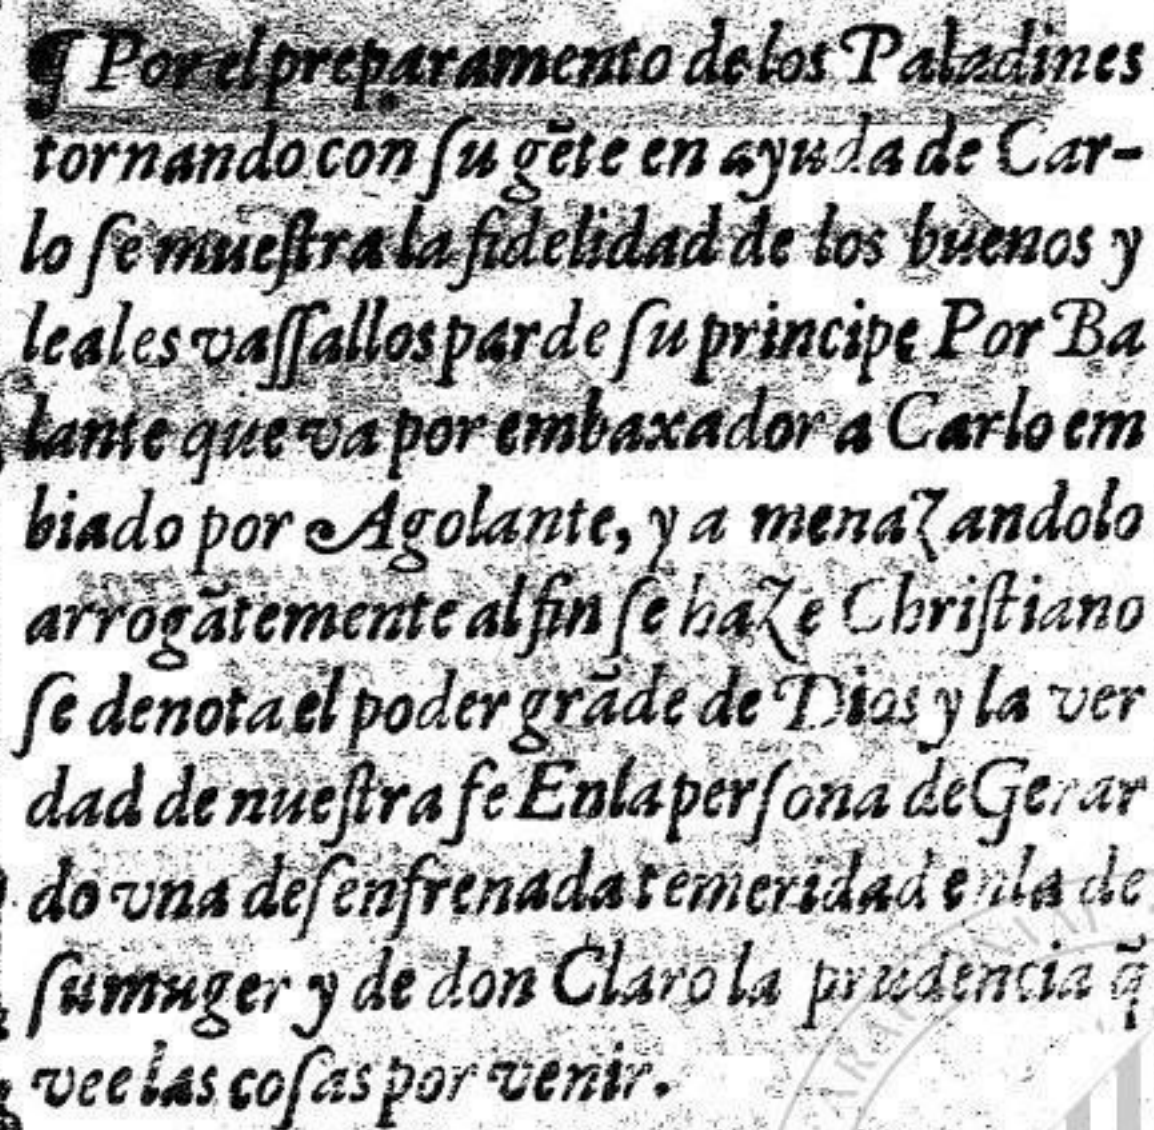 ¶ Por el preparamento de los Paladines
tornando con ſu gẽte en ayuda de Car-
lo ſe mueſtra la fidelidad de los buenos y
leales vaſſallos par de ſu principe Por Ba
lante que va por embaxador a Carlo em
biado por Agolante, y a menazandolo
arrogãtemente al fin ſe haze Chriſtiano
ſe denota el poder grãde de Dios y la ver
dad de nueſtra fe En la perſona de Gerar
do vna deſenfrenada temeridad en la de
ſu muger y de don Claro la prudencia q̃
vee las coſas por venir.